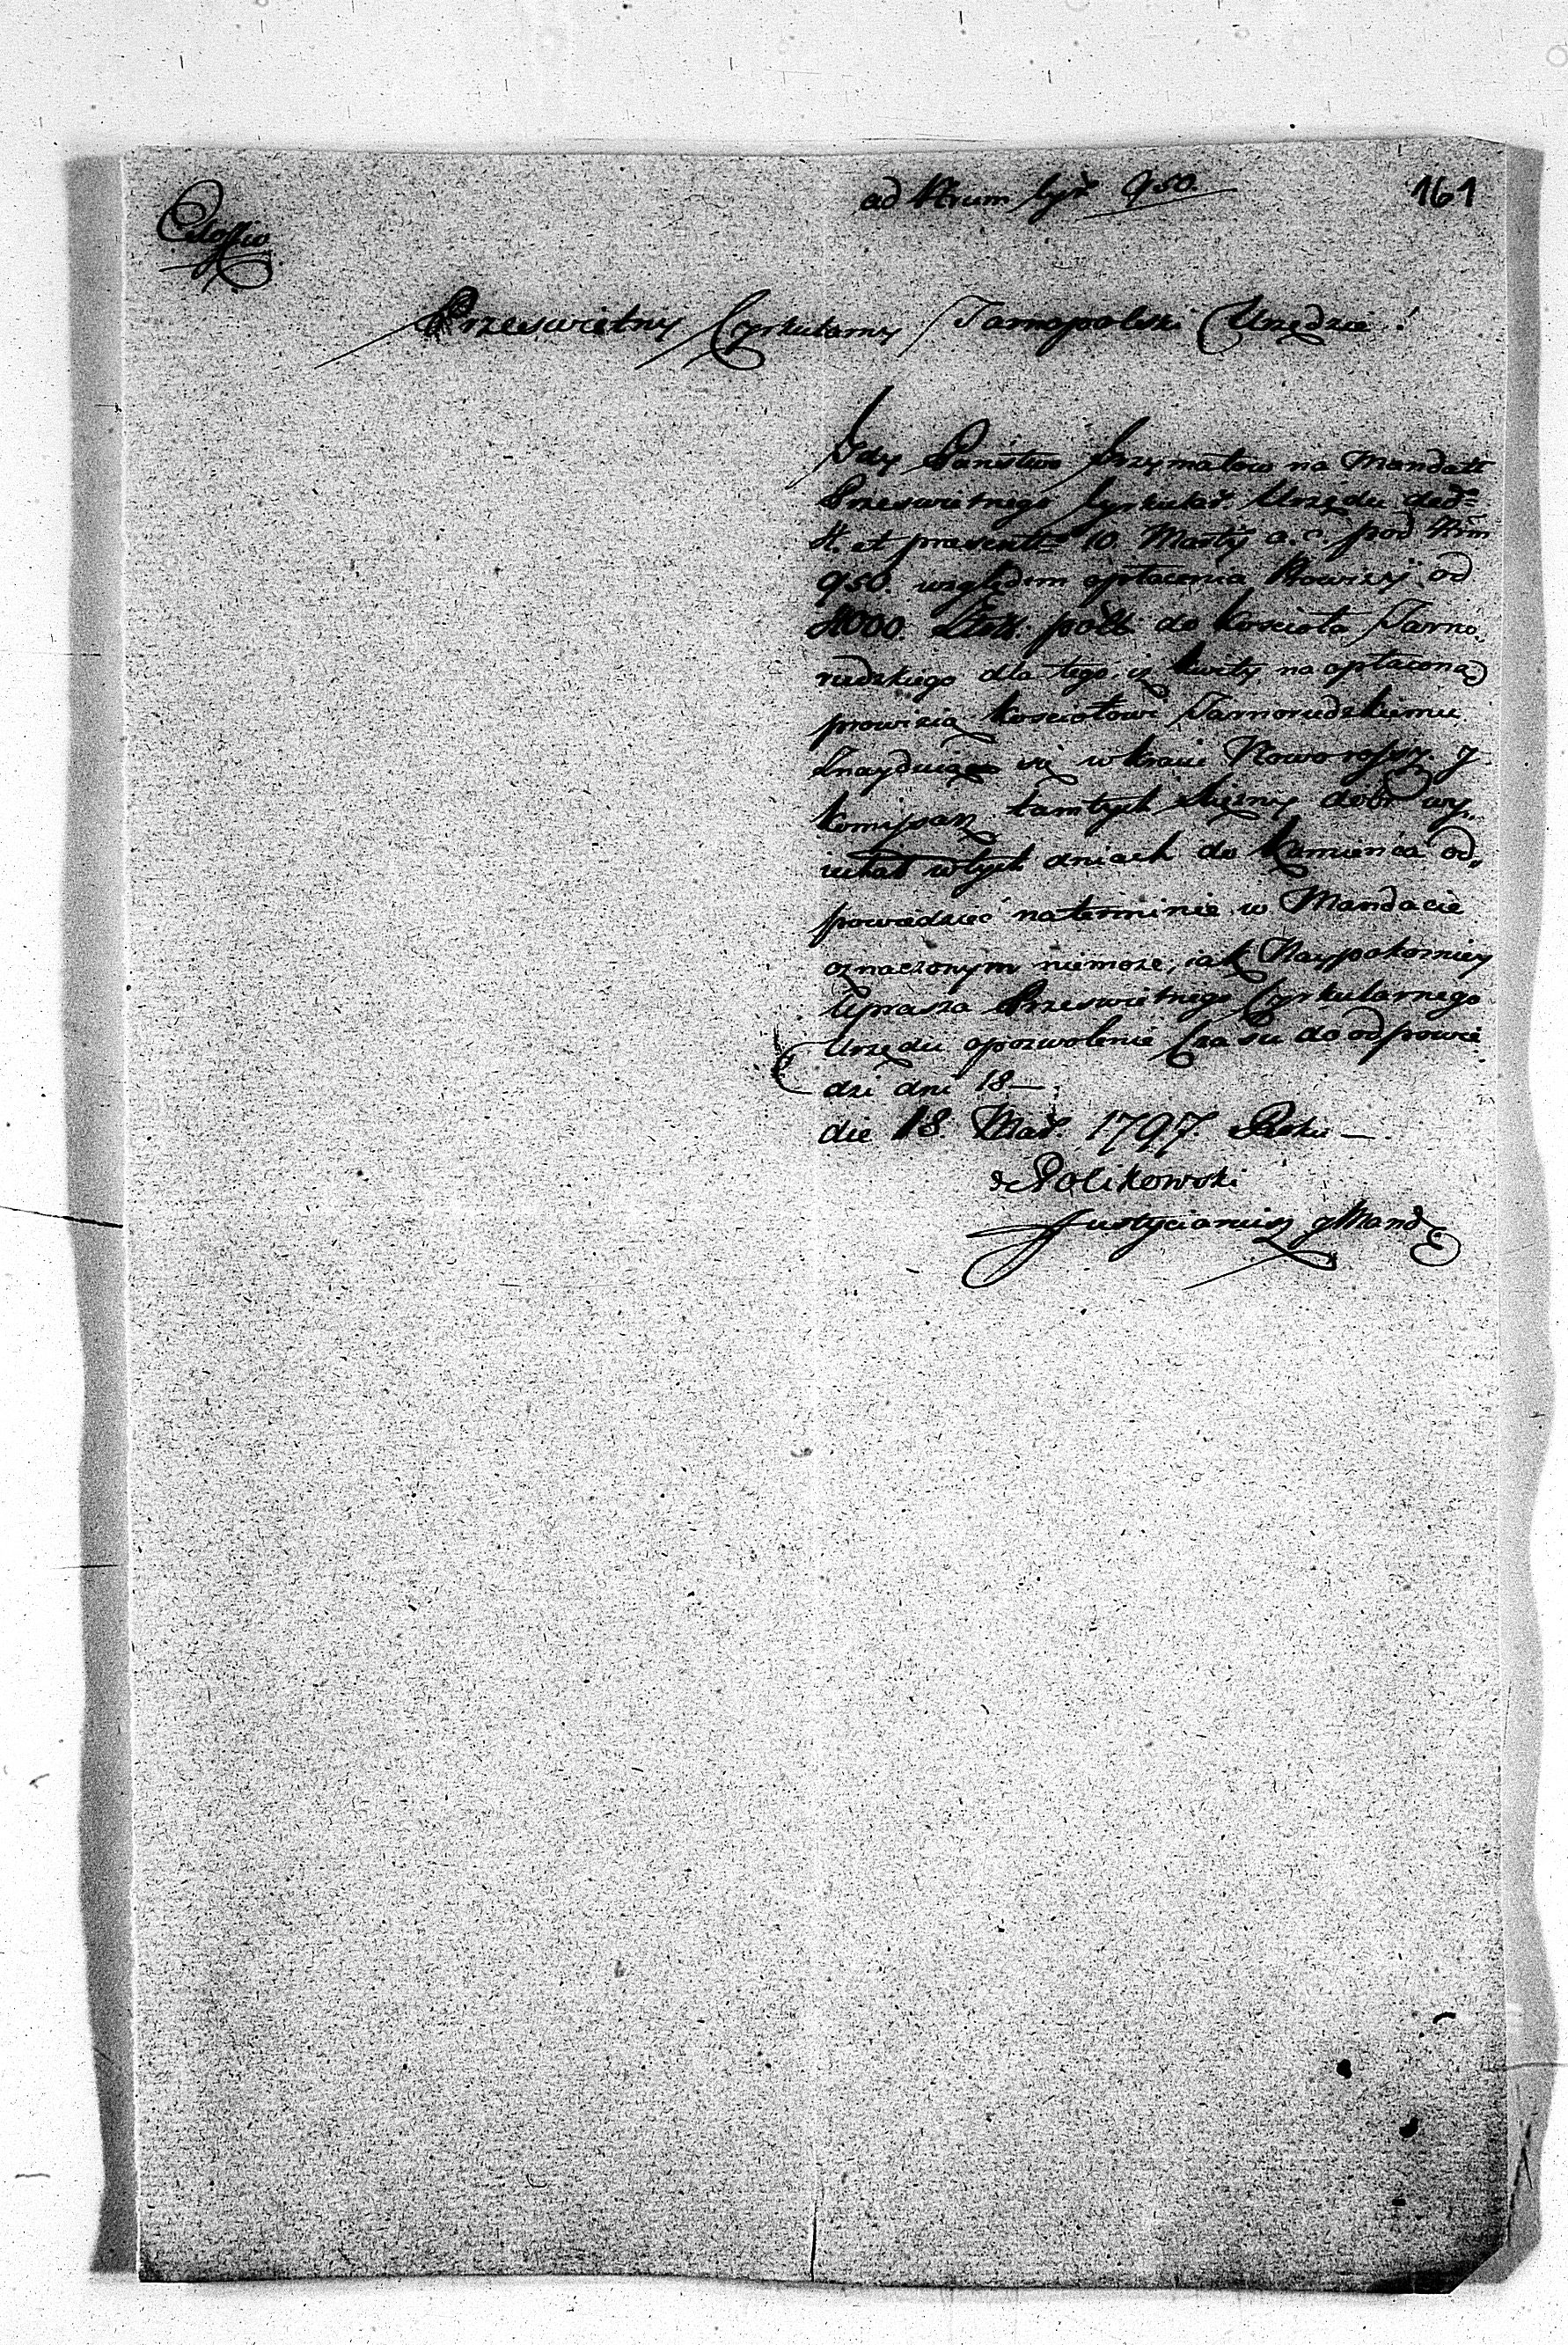 ad Nrum 950.
161
Ex Offio
Przeswietny Cyrkularny Tarnopolski Urzędzie!
Gdy Państwo Grzymałow na Mandatt
Przeswietnego Cyrkular. Urzędu
et praesentto 10 Martij a. c. pod Nrm
950. względem opłacenia Prowizij od
4000. do koscioła Tarno,
rudzkiego dla tego, iz kwity na opłaconą
prowizią kosciołowi Tarnorudzkiemu
znayduią się w kraiu Noworossyi. y
komissarz tamtych dobr wy,
iechał w tych dniach do Kamieńca od,
powiedzieć na terminie w Mandacie
oznaczonym niemoze, iak Naypokorniey
Uprasza Przeswietnego Cyrkularnego
Urzędu opozwolenie Czasu do odpowie
dzi dni 18—
die 18. Mar. 1797. Roku —
Rolikowski
Justycianusz y Mand